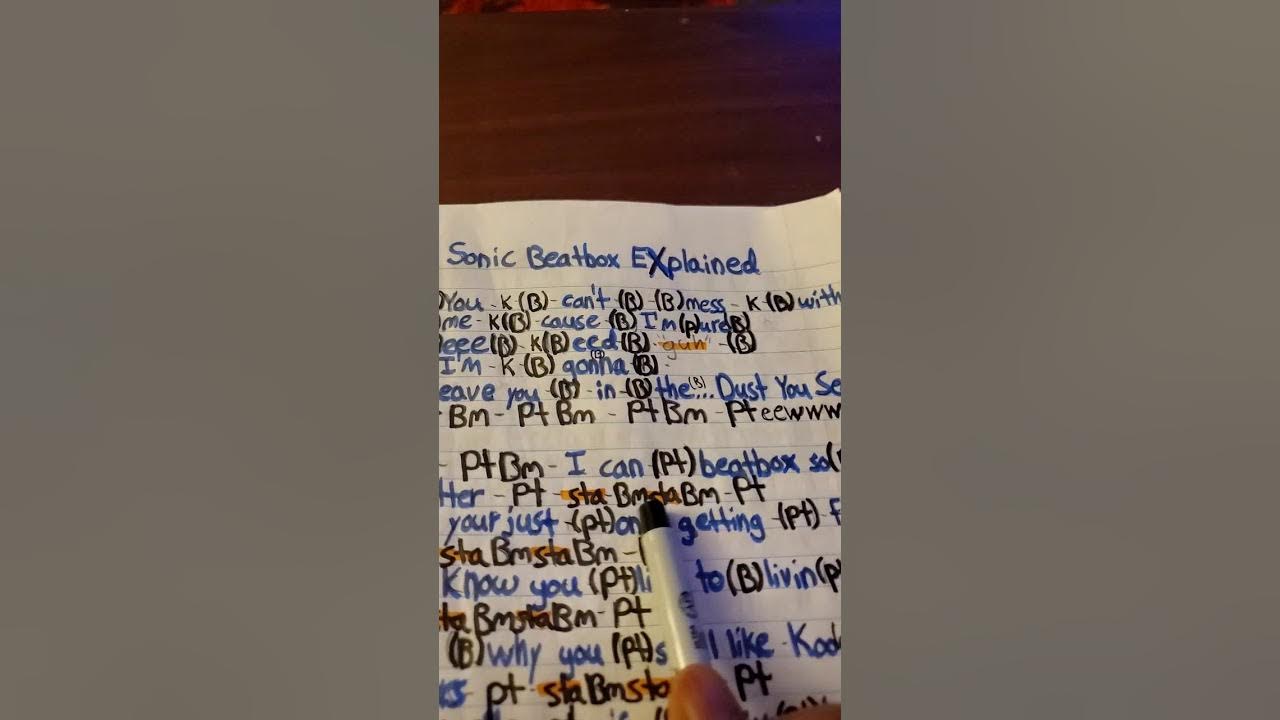 Sonic Beatbox EXplained
You - K (B) - can't (B) - (B) mess - K (B) with
me - K(B) - cause (B) I'm (p)ure(B)
eee(B) - K(B)eed(B) - "gun" - (B)
I'm - K - (B) gonna (B) (B) -
eave you (B) - in - (B) the (B)... Dust You Se
- Bm - Pt Bm - Pt Bm - Pt eewww
- Pt Bm - I can (Pt) beatbox so(
tter - Pt - sta Bm sta Bm - Pt
your just - (pt)on getting - (pt) f
sta Bm sta Bm - (
Know you (Pt)li to (B) livin(p
ta Bm sta Bm - Pt
(B) why you (Pt)s ll like - Kod
ks pt - sta Bm sta Pt